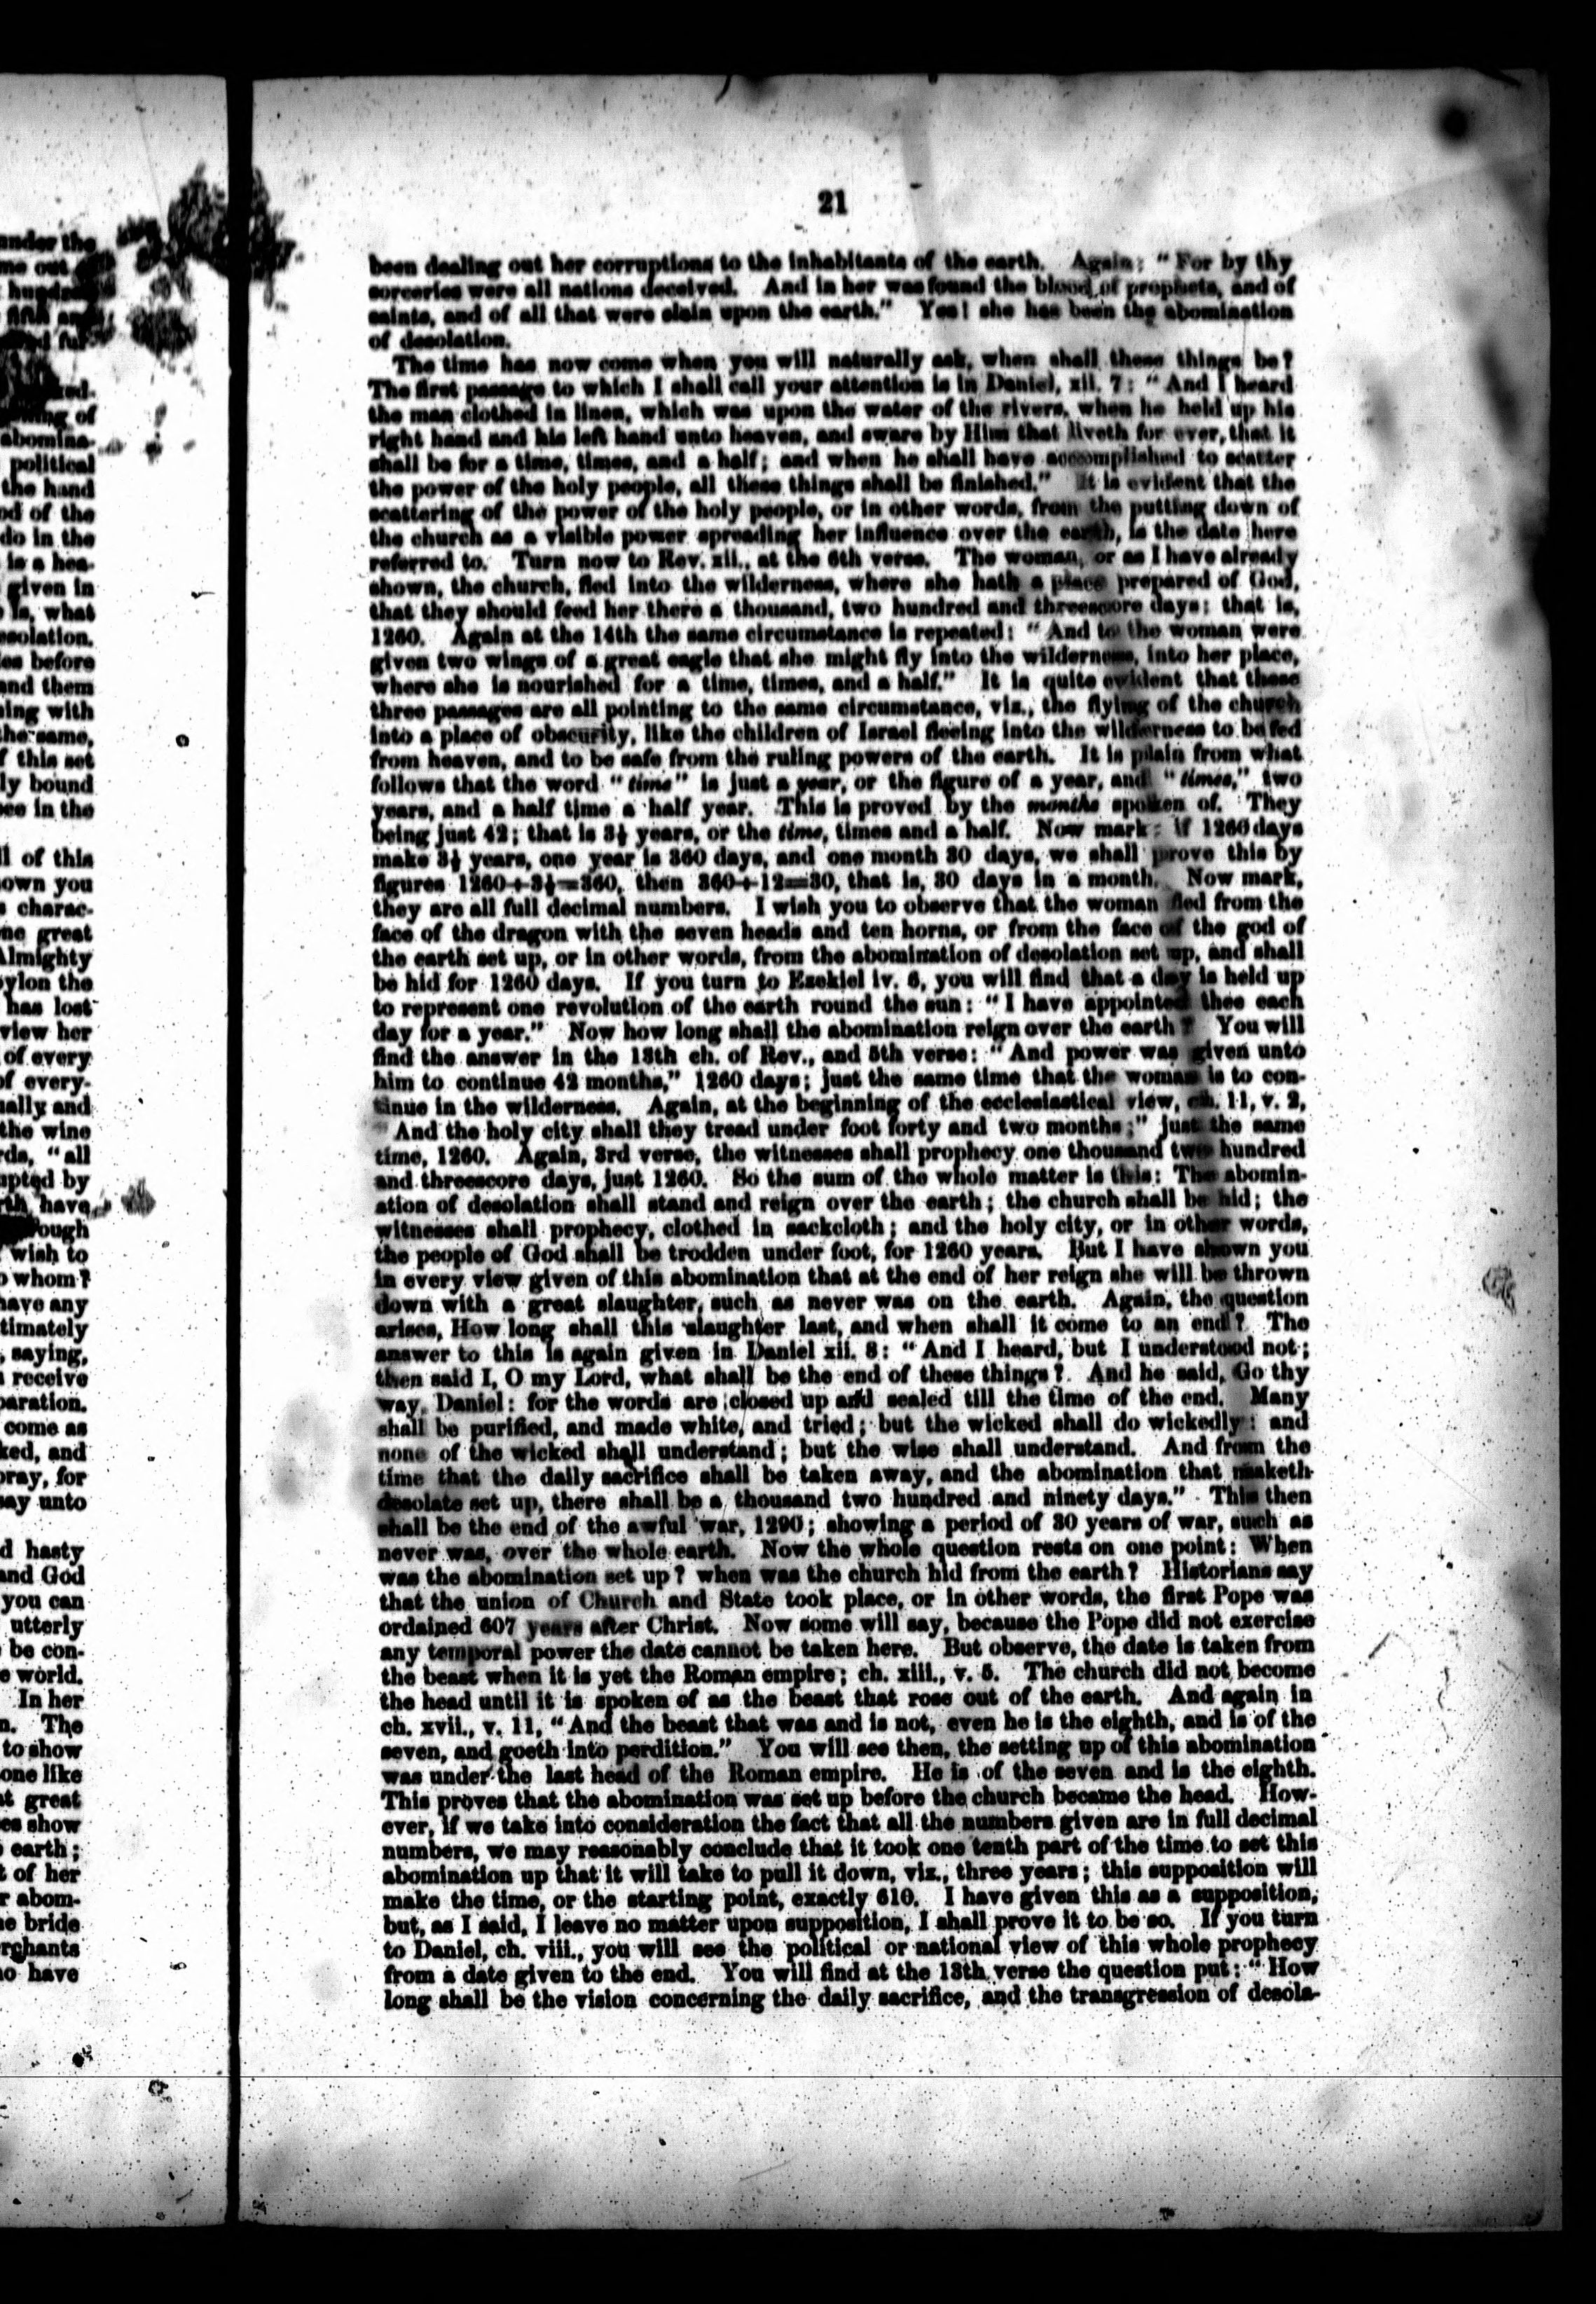 21
been dealing out her corruptions to the inhabitants of the earth. Again: "For by thy
sorceries were all nations deceived. And in her was found the blood of prophets, and of
saints, and of all that were slain upon the earth." Yes! she has been the abomination
of desolation.
The time has now come when you will naturally ask, when shall these things be?
The first passage to which I shall call your attention is in Daniel, xii. 7: "And I heard
the man clothed in linen, which was upon the water of the rivers, when he held up his
right hand and his left hand unto heaven, and sware by Him that liveth for ever, that it
shall be for a time, times, and a half; and when he shall have accomplished to scatter
the power of the holy people, all these things shall be finished." It is evident that the
scattering of the power of the holy people, or in other words, from the putting down of
the church as a visible power spreading her influence over the earth, is the date here
referred to. Turn now to Rev. xii., at the 6th verse. The woman, or as I have already
shown, the church, fled into the wilderness, where she hath a place prepared of God,
that they should feed her there a thousand, two hundred and threescore days: that is,
1260. Again at the 14th the same circumstance is repeated: "And to the woman were
given two wings of a great eagle that she might fly into the wilderness, into her place,
where she is nourished for a time, times, and a half." It is quite evident that these
three passages are all pointing to the same circumstance, viz., the flying of the church
into a place of obscurity, like the children of Israel fleeing into the wilderness to be fed
from heaven, and to be safe from the ruling powers of the earth. It is plain from what
follows that the word "time" is just a year, or the figure of a year, and "times," two
years, and a half time a half year. This is proved by the months spoken of. They
being just 42; that is 3½ years, or the time, times and a half. Now mark: if 1260 days
make 3½ years, one year is 360 days, and one month 30 days, we shall prove this by
figures 1260÷3½=360, then 360÷12=30, that is, 30 days in a month. Now mark,
they are all full decimal numbers. I wish you to observe that the woman fled from the
face of the dragon with the seven heads and ten horns, or from the face of the god of
the earth set up, or in other words, from the abomination of desolation set up, and shall
be hid for 1260 days. If you turn to Ezekiel iv. 6, you will find that a day is held up
to represent one revolution of the earth round the sun: "I have appointed thee each
day for a year." Now how long shall the abomination reign over the earth? You will
find the answer in the 13th ch. of Rev., and 5th verse: "And power was given unto
him to continue 42 months," 1260 days; just the same time that the woman is to con-
tinue in the wilderness. Again, at the beginning of the ecclesiastical view, ch. 11, v. 2,
"And the holy city shall they tread under foot forty and two months;" just the same
time, 1260. Again, 3rd verse, the witnesses shall prophecy one thousand two hundred
and threescore days, just 1260. So the sum of the whole matter is this: The abomin-
ation of desolation shall stand and reign over the earth; the church shall be hid; the
witnesses shall prophecy, clothed in sackcloth; and the holy city, or in other words,
the people of God shall be trodden under foot, for 1260 years. But I have shown you
in every view given of this abomination that at the end of her reign she will be thrown
down with a great slaughter, such as never was on the earth. Again, the question
arises, How long shall this slaughter last, and when shall it come to an end? The
answer to this is again given in Daniel xii. 8: "And I heard, but I understood not;
then said I, O my Lord, what shall be the end of these things? And he said, Go thy
way, Daniel: for the words are closed up and sealed till the time of the end. Many
shall be purified, and made white, and tried; but the wicked shall do wickedly: and
none of the wicked shall understand; but the wise shall understand. And from the
time that the daily sacrifice shall be taken away, and the abomination that maketh
desolate set up, there shall be a thousand two hundred and ninety days." This then
shall be the end of the awful war, 1290; showing a period of 30 years of war, such as
never was, over the whole earth. Now the whole question rests on one point: When
was the abomination set up? when was the church hid from the earth? Historians say
that the union of Church and State took place, or in other words, the first Pope was
ordained 607 years after Christ. Now some will say, because the Pope did not exercise
any temporal power the date cannot be taken here. But observe, the date is taken from
the beast when it is yet the Roman empire; ch. xiii., v. 5. The church did not become
the head until it is spoken of as the beast that rose out of the earth. And again in
ch. xvii., v. 11, "And the beast that was and is not, even he is the eighth, and is of the
seven, and goeth into perdition." You will see then, the setting up of this abomination
was under the last head of the Roman empire. He is of the seven and is the eighth.
This proves that the abomination was set up before the church became the head. How-
ever, if we take into consideration the fact that all the numbers given are in full decimal
numbers, we may reasonably conclude that it took one tenth part of the time to set this
abomination up that it will take to pull it down, viz., three years; this supposition will
make the time, or the starting point, exactly 610. I have given this as a supposition,
but, as I said, I leave no matter upon supposition, I shall prove it to be so. If you turn
to Daniel, ch. viii., you will see the political or national view of this whole prophecy
from a date given to the end. You will find at the 13th verse the question put: "How
long shall be the vision concerning the daily sacrifice, and the transgression of desola-